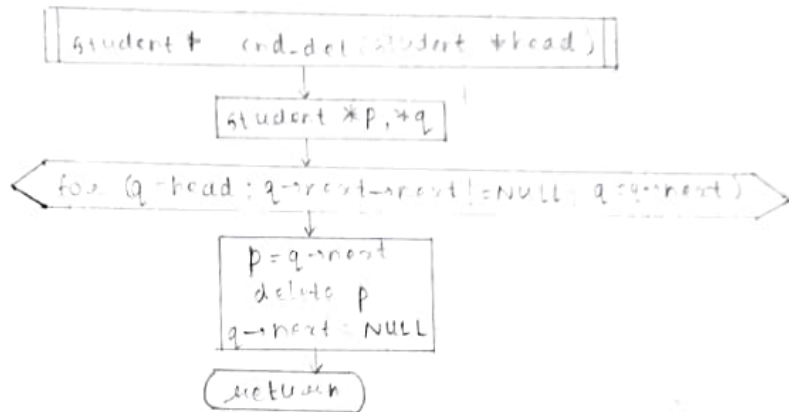 student * end_del (student *head)
student *p, *q
for (q=head; q→next→next!=NULL; q=q→next)
p=q→next
delete p
q→next=NULL
return